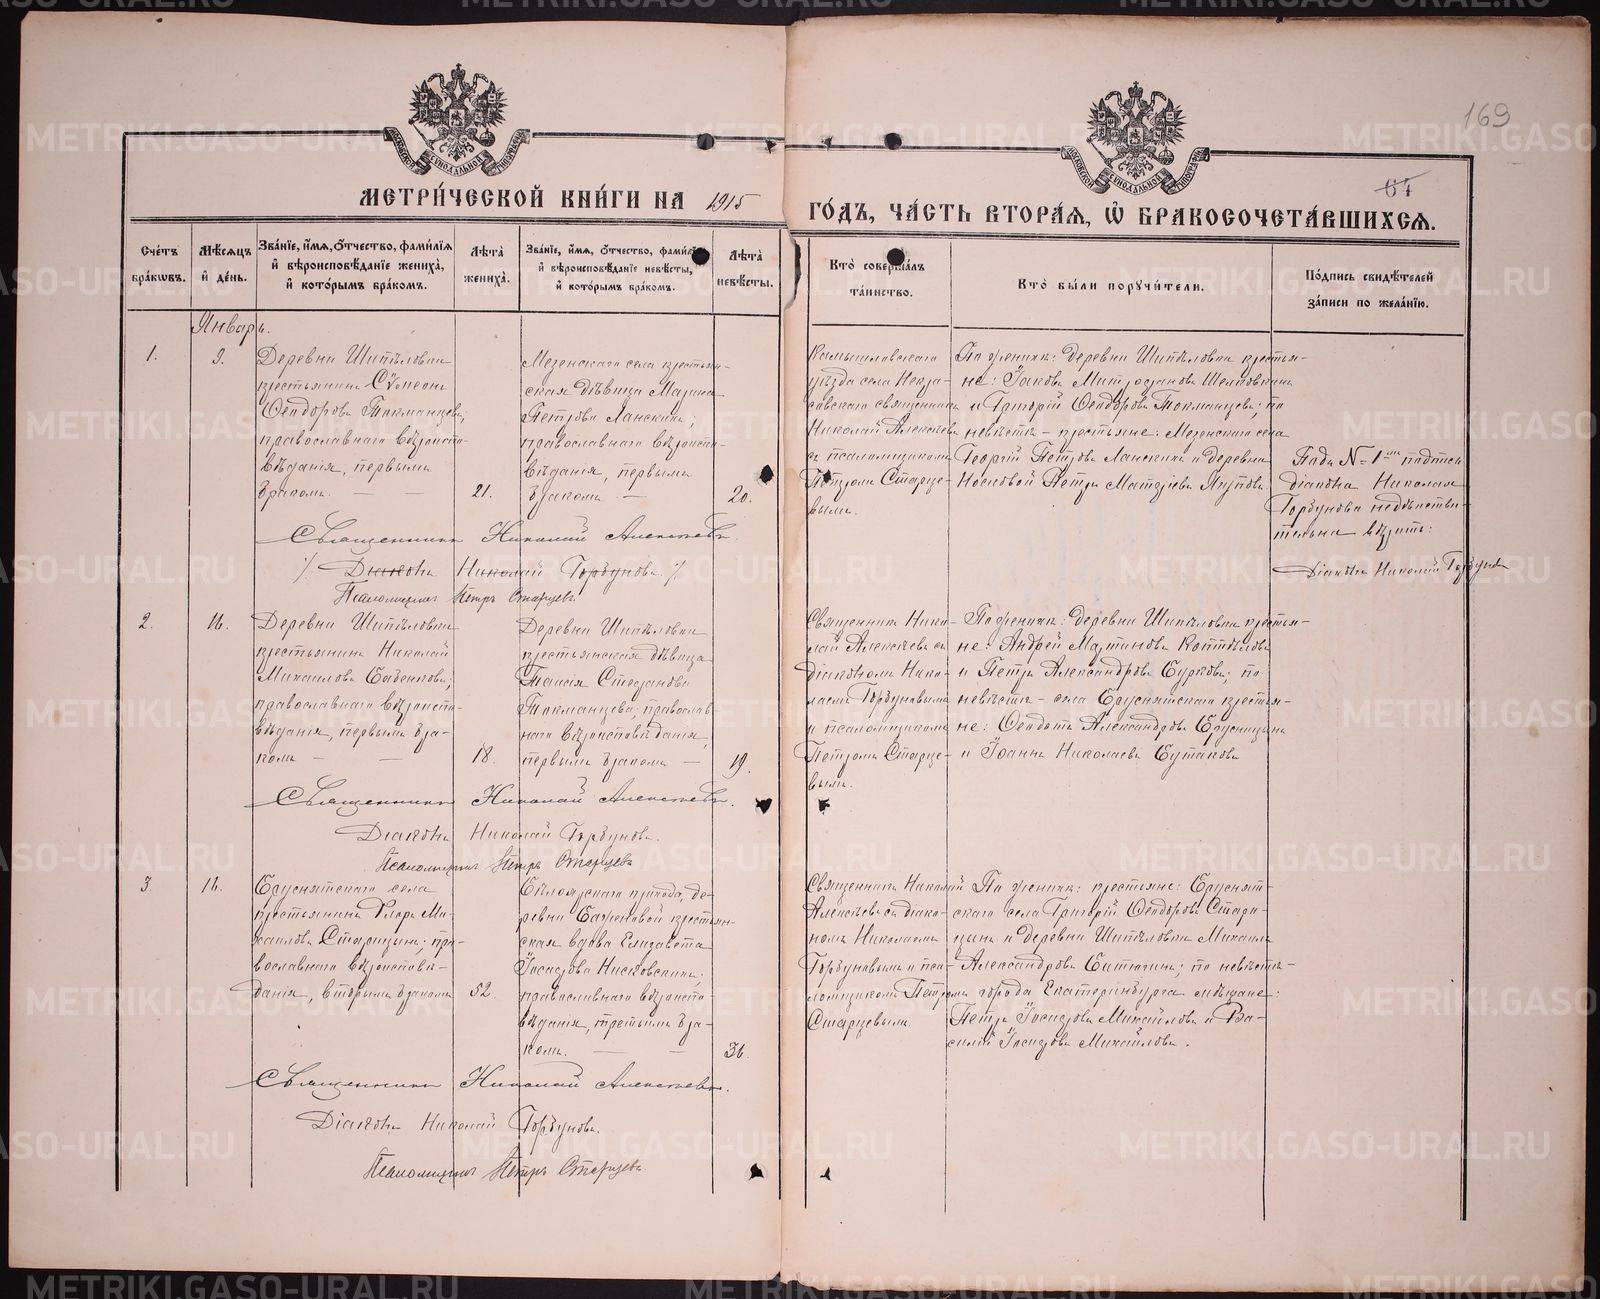 169
64
МЕТРИ́ЧЕСКОЙ КНИ́ГИ НА 1915 ГО́ДЪ, ЧА́СТЬ ВТОРА́Я, Ѡ БРАКОСОЧЕТА́ВШИХСЯ.
Сче́тъ бра́кѡвъ.
Мѣ́сяцъ и де́нь.
Зва́нїе, и́мя, о́тчество, фами́лїя и вѣроисповѣ́данїе жениха̀, и кото́рымъ бра́комъ.
Лѣ́та жениха̀.
Зва́нїе, и́мя, о́тчество, фами́лїя и вѣроисповѣ́данїе невѣ́сты, и кото́рымъ бра́комъ.
Лѣ́та невѣ́сты.
Кто̀ соверша́лъ та́инство.
Кто̀ бы́ли поручи́тели.
По́дпись свидѣ́телей за́писи по жела́нїю.
Январь.
1.
9.
Деревни Шипѣловки
крестьянинъ Сѵмеонъ
Ѳеодоровъ Токманцевъ,
православнаго вѣроиспо-
вѣданія, первымъ
бракомъ.
21.
Мезенскаго села крестьян-
ская дѣвица Марина
Петрова Ланскихъ,
православнаго вѣроиспо-
вѣданія, первымъ
бракомъ
20.
Камышловскаго
уѣзда села Некра-
совскаго священникъ
Николай Алексѣевъ
съ псаломщикомъ
Петромъ Старце-
вымъ.
По женихѣ: деревни Шипѣловки крестья-
не: Іаковъ Митрофановъ Шелковкинъ
и Григорій Ѳеодоровъ Токманцевъ; по
невѣстѣ - крестьяне: Мезенскаго села
Георгій Петровъ Ланскихъ и деревни
Носковой Петръ Матѳіевъ Ляповъ
Подъ № 1-мъ подпись
діакона Николая
Горбунова недѣйстви-
тельна вѣрить:
Діаконъ Николай Горбуновъ
Священникъ Николай Алексѣевъ.
Діаконъ Николай Горбуновъ.
Псаломщикъ Петръ Старцевъ
2.
16.
Деревни Шипѣловки
крестьянинъ Николай
Михаиловъ Бабенковъ,
православнаго вѣроиспо-
вѣданія, первымъ бра-
комъ
18.
Деревни Шипѣловки
крестьянская дѣвица
Таисія Стефанова
Токманцева, православ-
наго вѣроисповѣданія,
первымъ бракомъ
19.
Священникъ Нико-
лай Алексѣевъ съ
діакономъ Нико-
лаемъ Горбуновымъ
и псаломщикомъ
Петромъ Старце-
вымъ.
По женихѣ: деревни Шипѣловки крестья-
не: Андрей Мартиновъ Коптѣловъ
и Петръ Александровъ Бурковъ; по
невѣстѣ - села Бруснятскаго крестья-
не: Ѳеодотъ Александровъ Брусницынъ
и Іоаннъ Николаевъ Бутаковъ
Священникъ Николай Алексѣевъ.
Діаконъ Николай Горбуновъ.
Псаломщикъ Петръ Старцевъ
3.
16.
Бруснятскаго села
крестьянинъ Флоръ Ми-
хаиловъ Старицынъ, пра-
вославнаго вѣроисповѣ-
данія, вторымъ бракомъ
52.
Бѣлоярскаго прихода, де-
ревни Баженовой крестьян-
ская вдова Елизавета
Исидорова Нисковскихъ.
православнаго вѣроиспо-
вѣданія, третьимъ бра-
комъ.
36.
Священникъ Николай
Алексѣевъ съ діако-
номъ Николаемъ
Горбуновымъ и пса-
ломщикомъ Петромъ
Старцевымъ.
По женихѣ: крестьяне: Бруснят-
скаго села Григорій Ѳеодоровъ Стари-
цынъ и деревни Шипѣловки Михаилъ
Александровъ Битюгинъ; по невѣстѣ-
города Екатеринбурга мѣщане:
Петръ Исидоровъ Михайловъ и Ва-
силій Исидоровъ Михайловъ.
Священникъ Николай Алексѣевъ.
Діаконъ Николай Горбуновъ.
Псаломщикъ Петръ Старцевъ
METRIKI.GASO-URAL.RU